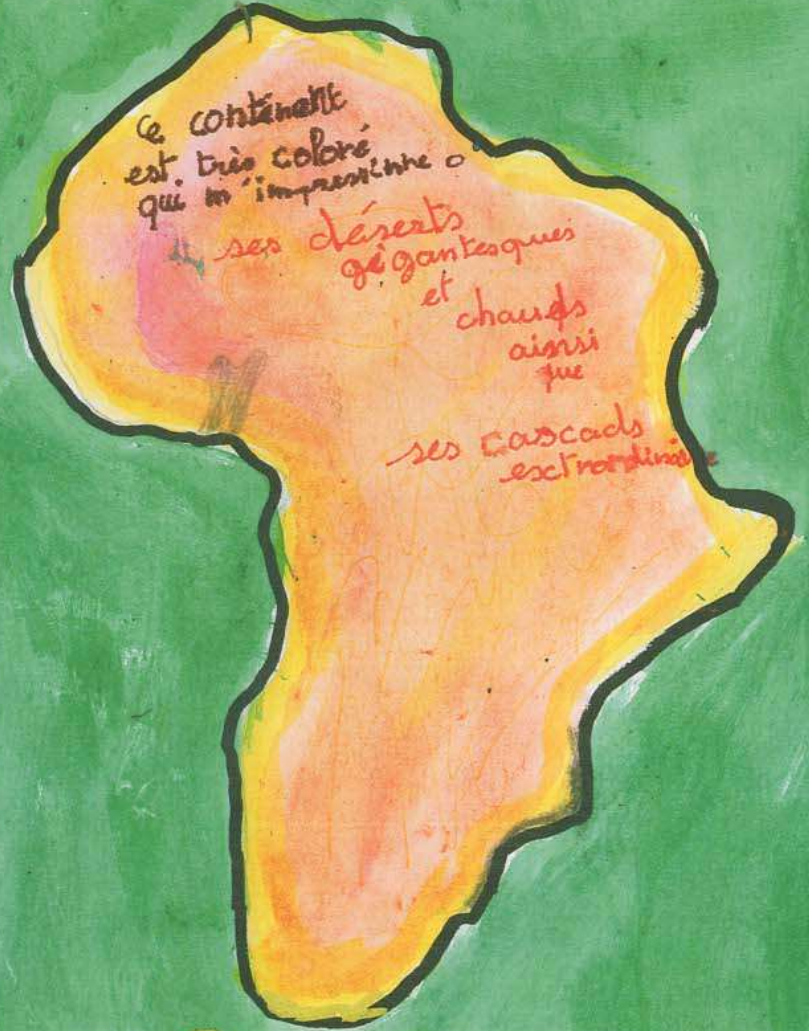 Ce continent
est très coloré
qui m'impressinne.
ses déserts
gégantesques
et
chauds
ainsi
que
ses cascads
esctrordinaire